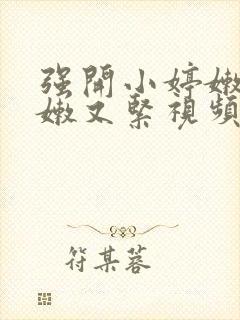 强開小婷嫩
嫩又緊視頻
符某蓉